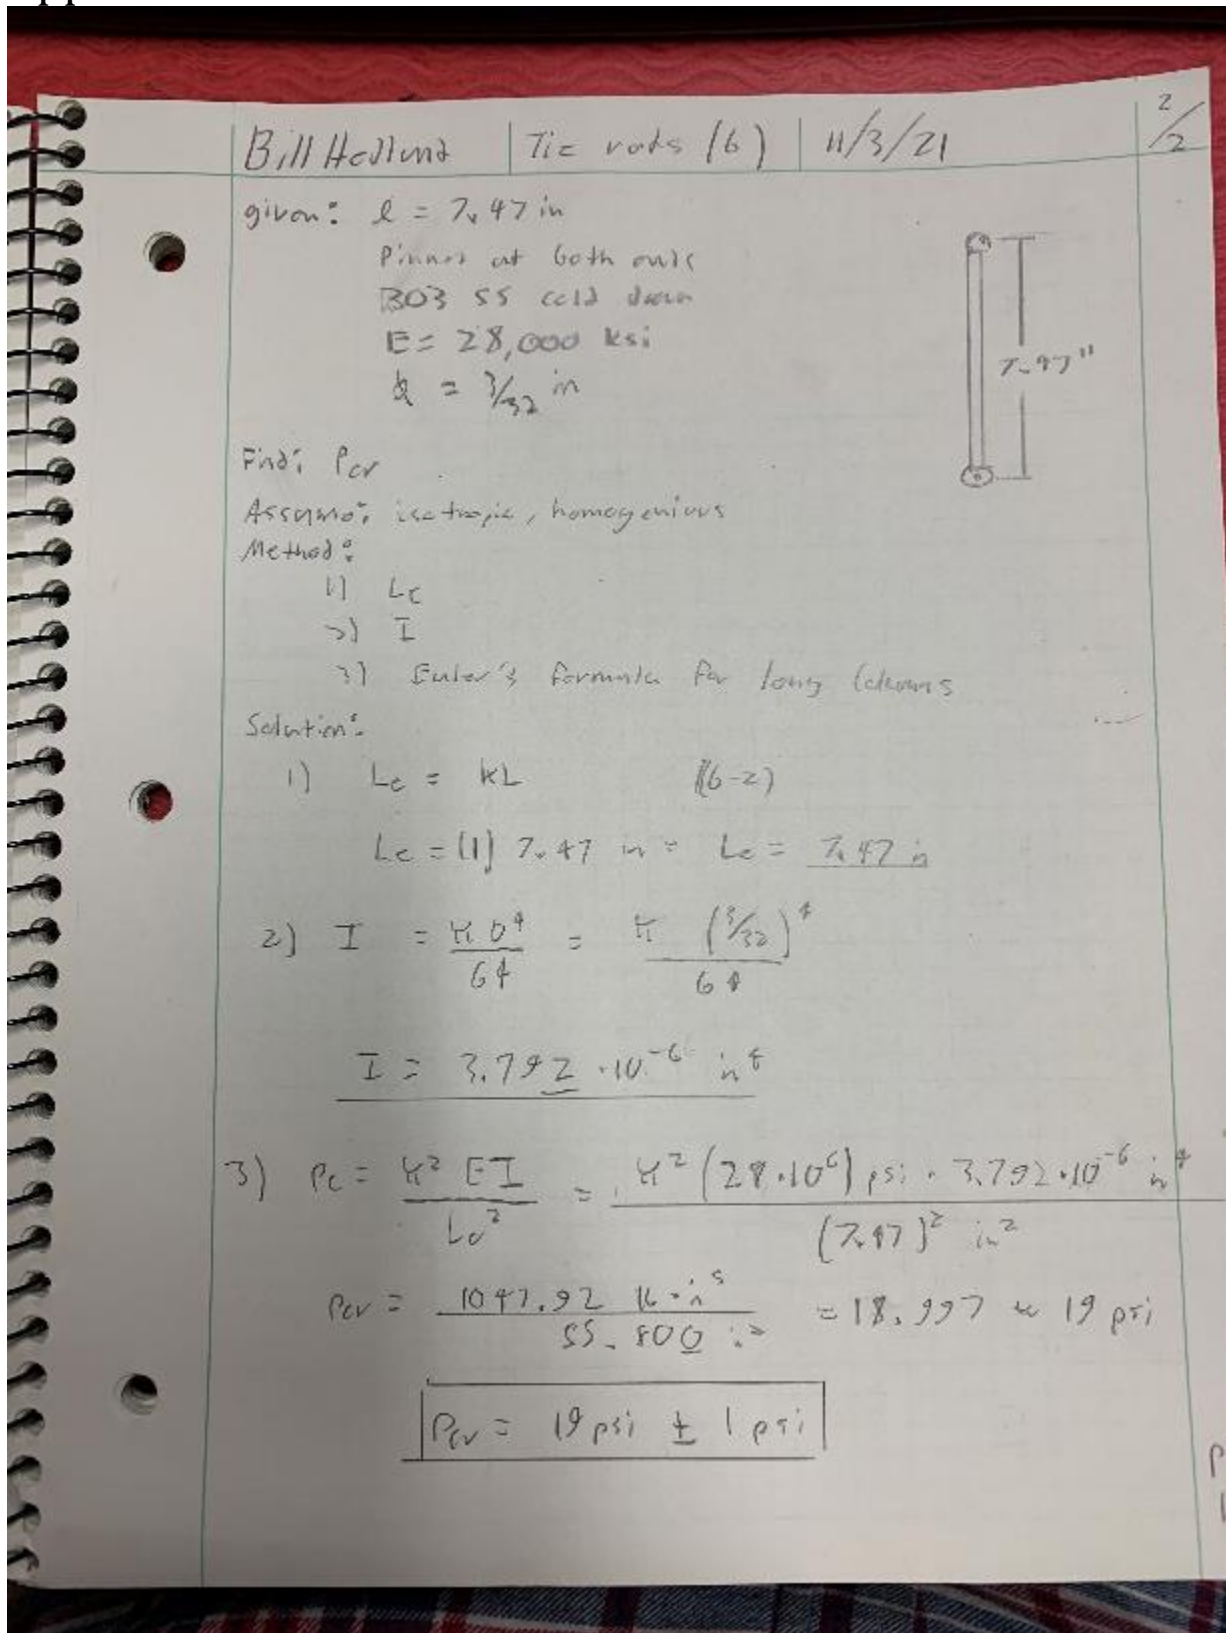 Bill Hollund | Tie rods (6) | 11/3/21 2/2
given: l = 7.47 in
Pinned at both ends
303 SS cold drawn
E = 28,000 ksi
= 3/32 in
7.47"
Find: Pcr
Assume: isotropic, homogenious
Method:
1) Le
2) I
3) Euler's formula for long columns
Solution:
1) Le = KL (6-2)
Le = (1) 7.47 in = Le = 7.47 in
2) I = π D⁴ / 64 = π (3/32)⁴ / 64
I = 3.792 · 10⁻⁶ in⁴
3) Pc = π² EI / Le² = π² (28·10⁶) psi · 3.792·10⁻⁶ in⁴ / (7.47)² in²
Pcr = 1047.92 / 55.800 = 18.997 ≈ 19 psi
Pcr = 19 psi ± 1 psi